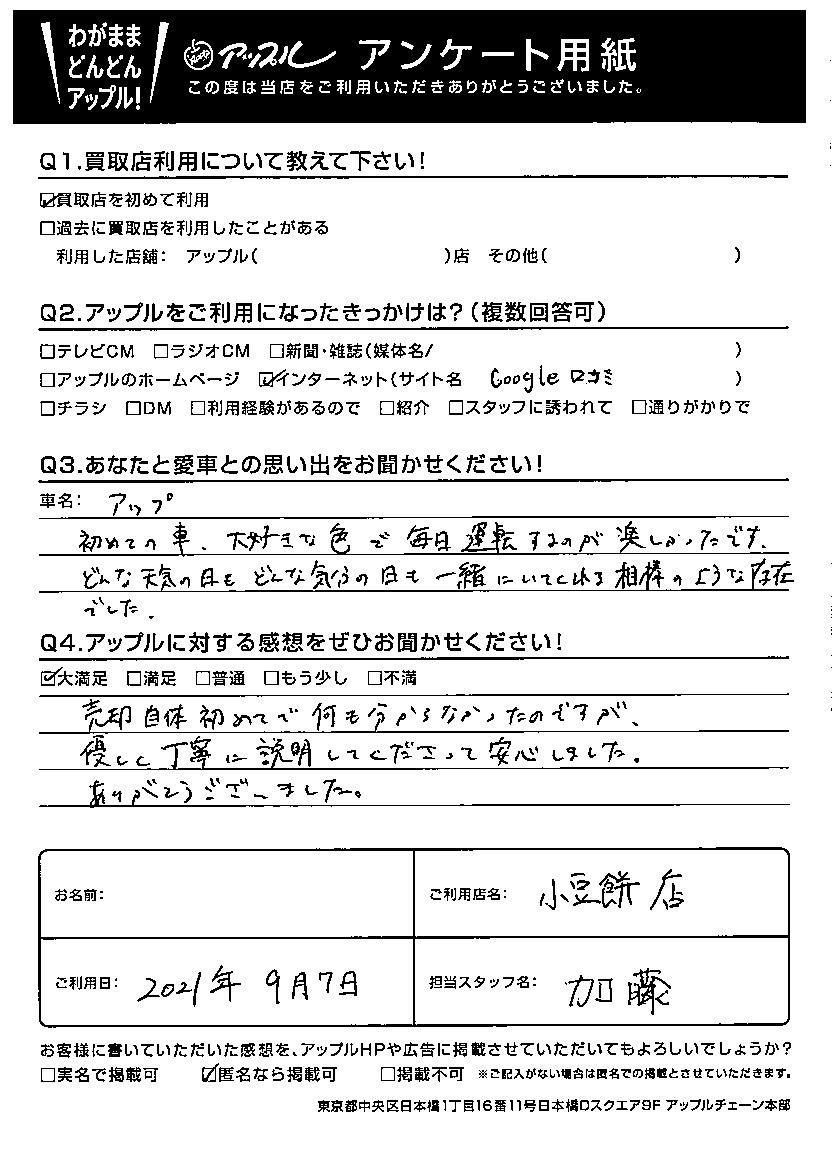 わがまま
どんどん
アップル!
アップル アンケート用紙
この度は当店をご利用いただきありがとうございました。
Q1.買取店利用について教えて下さい!
☑買取店を初めて利用
□過去に買取店を利用したことがある
利用した店舗: アップル( )店 その他( )
Q2.アップルをご利用になったきっかけは?(複数回答可)
□テレビCM □ラジオCM □新聞・雑誌(媒体名/ )
□アップルのホームページ ☑インターネット(サイト名 Google 口コミ )
□チラシ □DM □利用経験があるので □紹介 □スタッフに誘われて □通りがかりで
Q3.あなたと愛車との思い出をお聞かせください!
車名: アップ
初めての車、大好きな色で毎日運転するのが楽しかったです。
どんな天気の日もどんな気分の日も一緒にいてくれる相棒のような存在
でした.
Q4.アップルに対する感想をぜひお聞かせください!
☑大満足 □満足 □普通 □もう少し □不満
売却自体初めてで何も分からなかったのですが、
優しく丁寧に説明してくださって安心しました。
ありがとうございました。
お名前:
ご利用店名: 小豆餅店
ご利用日: 2021年 9月7日
担当スタッフ名: 加藤
お客様に書いていただいた感想を、アップルHPや広告に掲載させていただいてもよろしいでしょうか?
□実名で掲載可 ☑匿名なら掲載可 □掲載不可 ※ご記入がない場合は匿名での掲載とさせていただきます。
東京都中央区日本橋1丁目16番11号日本橋Dスクエア9F アップルチェーン本部